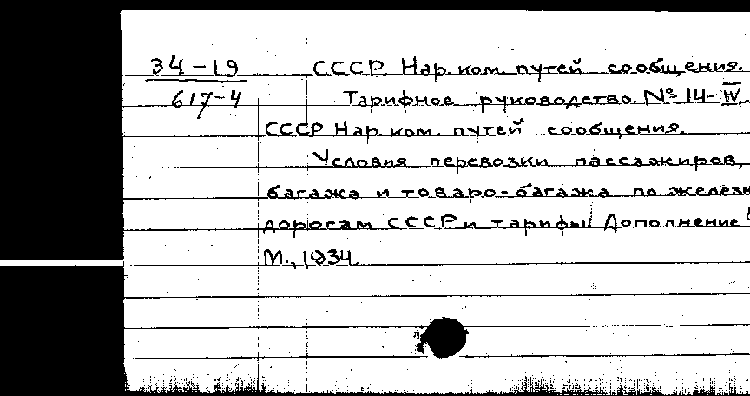 34-19 СССР. Нар. ком. путей сообщения.
617-4 Тарифное руководство. № 14-IV
СССР Нар. ком. путей сообщения.
Условия перевозки пассажиров,
багажа и товаро-багажа по железн
дорогам СССР и тарифы. Дополнение
М., 1934.